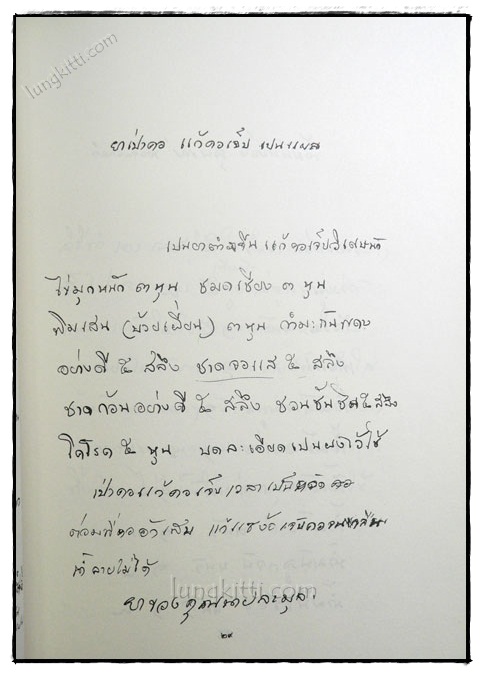 lungkitti.com
ยาเป่าคอ แก้คอเจ็บ เปนแผล
เปนยาตำจีน แก้คอเจ็บวิเศษนัก
ไข่มุกหนัก ๓ หุน ชมดเชียง ๓ หุน
พิมเสน (บ๊วยเพี่ยน) ๓ หุน กำมะถันแดง
อย่างดี ๕ สลึง ชาดจอแส ๕ สลึง
ชาดก้อนอย่างดี ๕ สลึง ชวนชั้นชิด ๕ สลึง
โคโรค ๕ หุน บดละเอียดเปนผงไว้ใช้
เป่าคอแก้คอเจ็บ เวลาเป็นหวัด คอ
ต่อมที่คออักเสบ แก้แซงจังเจ็บคอจนกลืน
น้ำลายไม่ได้
lungkitti.com
ยาของคุณนายละมุล
๒๙